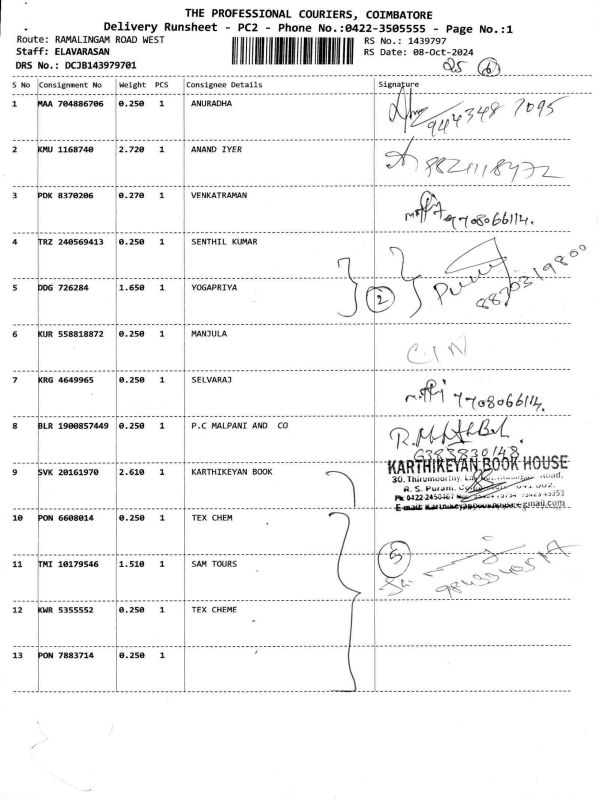 THE PROFESSIONAL COURIERS, COIMBATORE
Delivery Runsheet - PC2 - Phone No.:0422-3505555 - Page No.:1
Route: RAMALINGAM ROAD WEST RS No.: 1439797
Staff: ELAVARASAN RS Date: 08-Oct-2024
DRS No.: DCJB143979701
6
S No Consignment No Weight PCS Consignee Details Signature
1 MAA 704886706 0.250 1 ANURADHA
944348 7095
2 KMU 1168740 2.720 1 ANAND IYER
3 PDK 8370206 0.270 1 VENKATRAMAN
7708066114.
4 TRZ 240569413 0.250 1 SENTHIL KUMAR
2 8870319800
5 DDG 726284 1.650 1 YOGAPRIYA
6 KUR 558818872 0.250 1 MANJULA
CIN
7 KRG 4649965 0.250 1 SELVARAJ
7708066114.
8 BLR 1900857449 0.250 1 P.C MALPANI AND CO
6383830148
KARTHIKEYAN BOOK HOUSE
9 SVK 20161970 2.610 1 KARTHIKEYAN BOOK
30, Thirumoorthy
R. S. Puram,
Ph: 0422-2450167
10 PON 6608014 0.250 1 TEX CHEM
5
11 TMI 10179546 1.510 1 SAM TOURS
12 KWR 5355552 0.250 1 TEX CHEME
13 PON 7883714 0.250 1